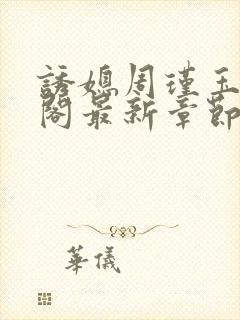 誘媳周瑾玉
閣最新章節
華儀